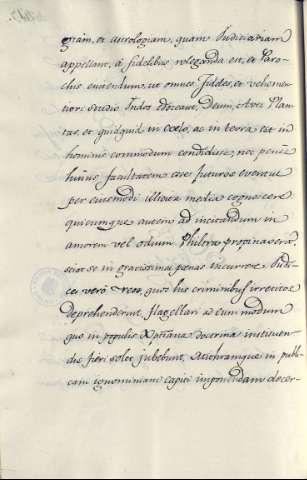 giam, et astrologiam, quam Iudiciariam
appellant, á fidelibus releganda est, et Paro-
chis curandum, ut omnes Fideles, et vehemen-
tiori studio Indos doceant, Deum, Aves Plan-
tas, et quidquid in Cœlo, ac in terra est in
hominis commodum condidisse, nec penes
huius facultatem esse futuros eventus
per eiusmodi illicita media cognoscere
quicumque autem ad incitandum in
amorem vel odium Philtra propinaverit,
sciat se in gravissimas penas incurrere Iudi-
ces verò Reos, quos his criminibus irretitos
deprehenderint, flagellari ad eum modum
quo in populis Xpñana doctrina instituen-
dis fieri solet jubebunt, mithramque in publi-
cam ignominiam capiti imponendam decer-